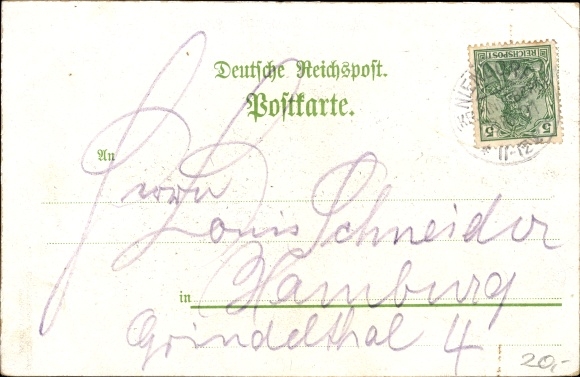 Deutsche Reichspost.
Postkarte.
REICHSPOST
5 5
11-12
An
Herrn
Louis Schneider
in Hamburg
Grindelthal 4
20,-